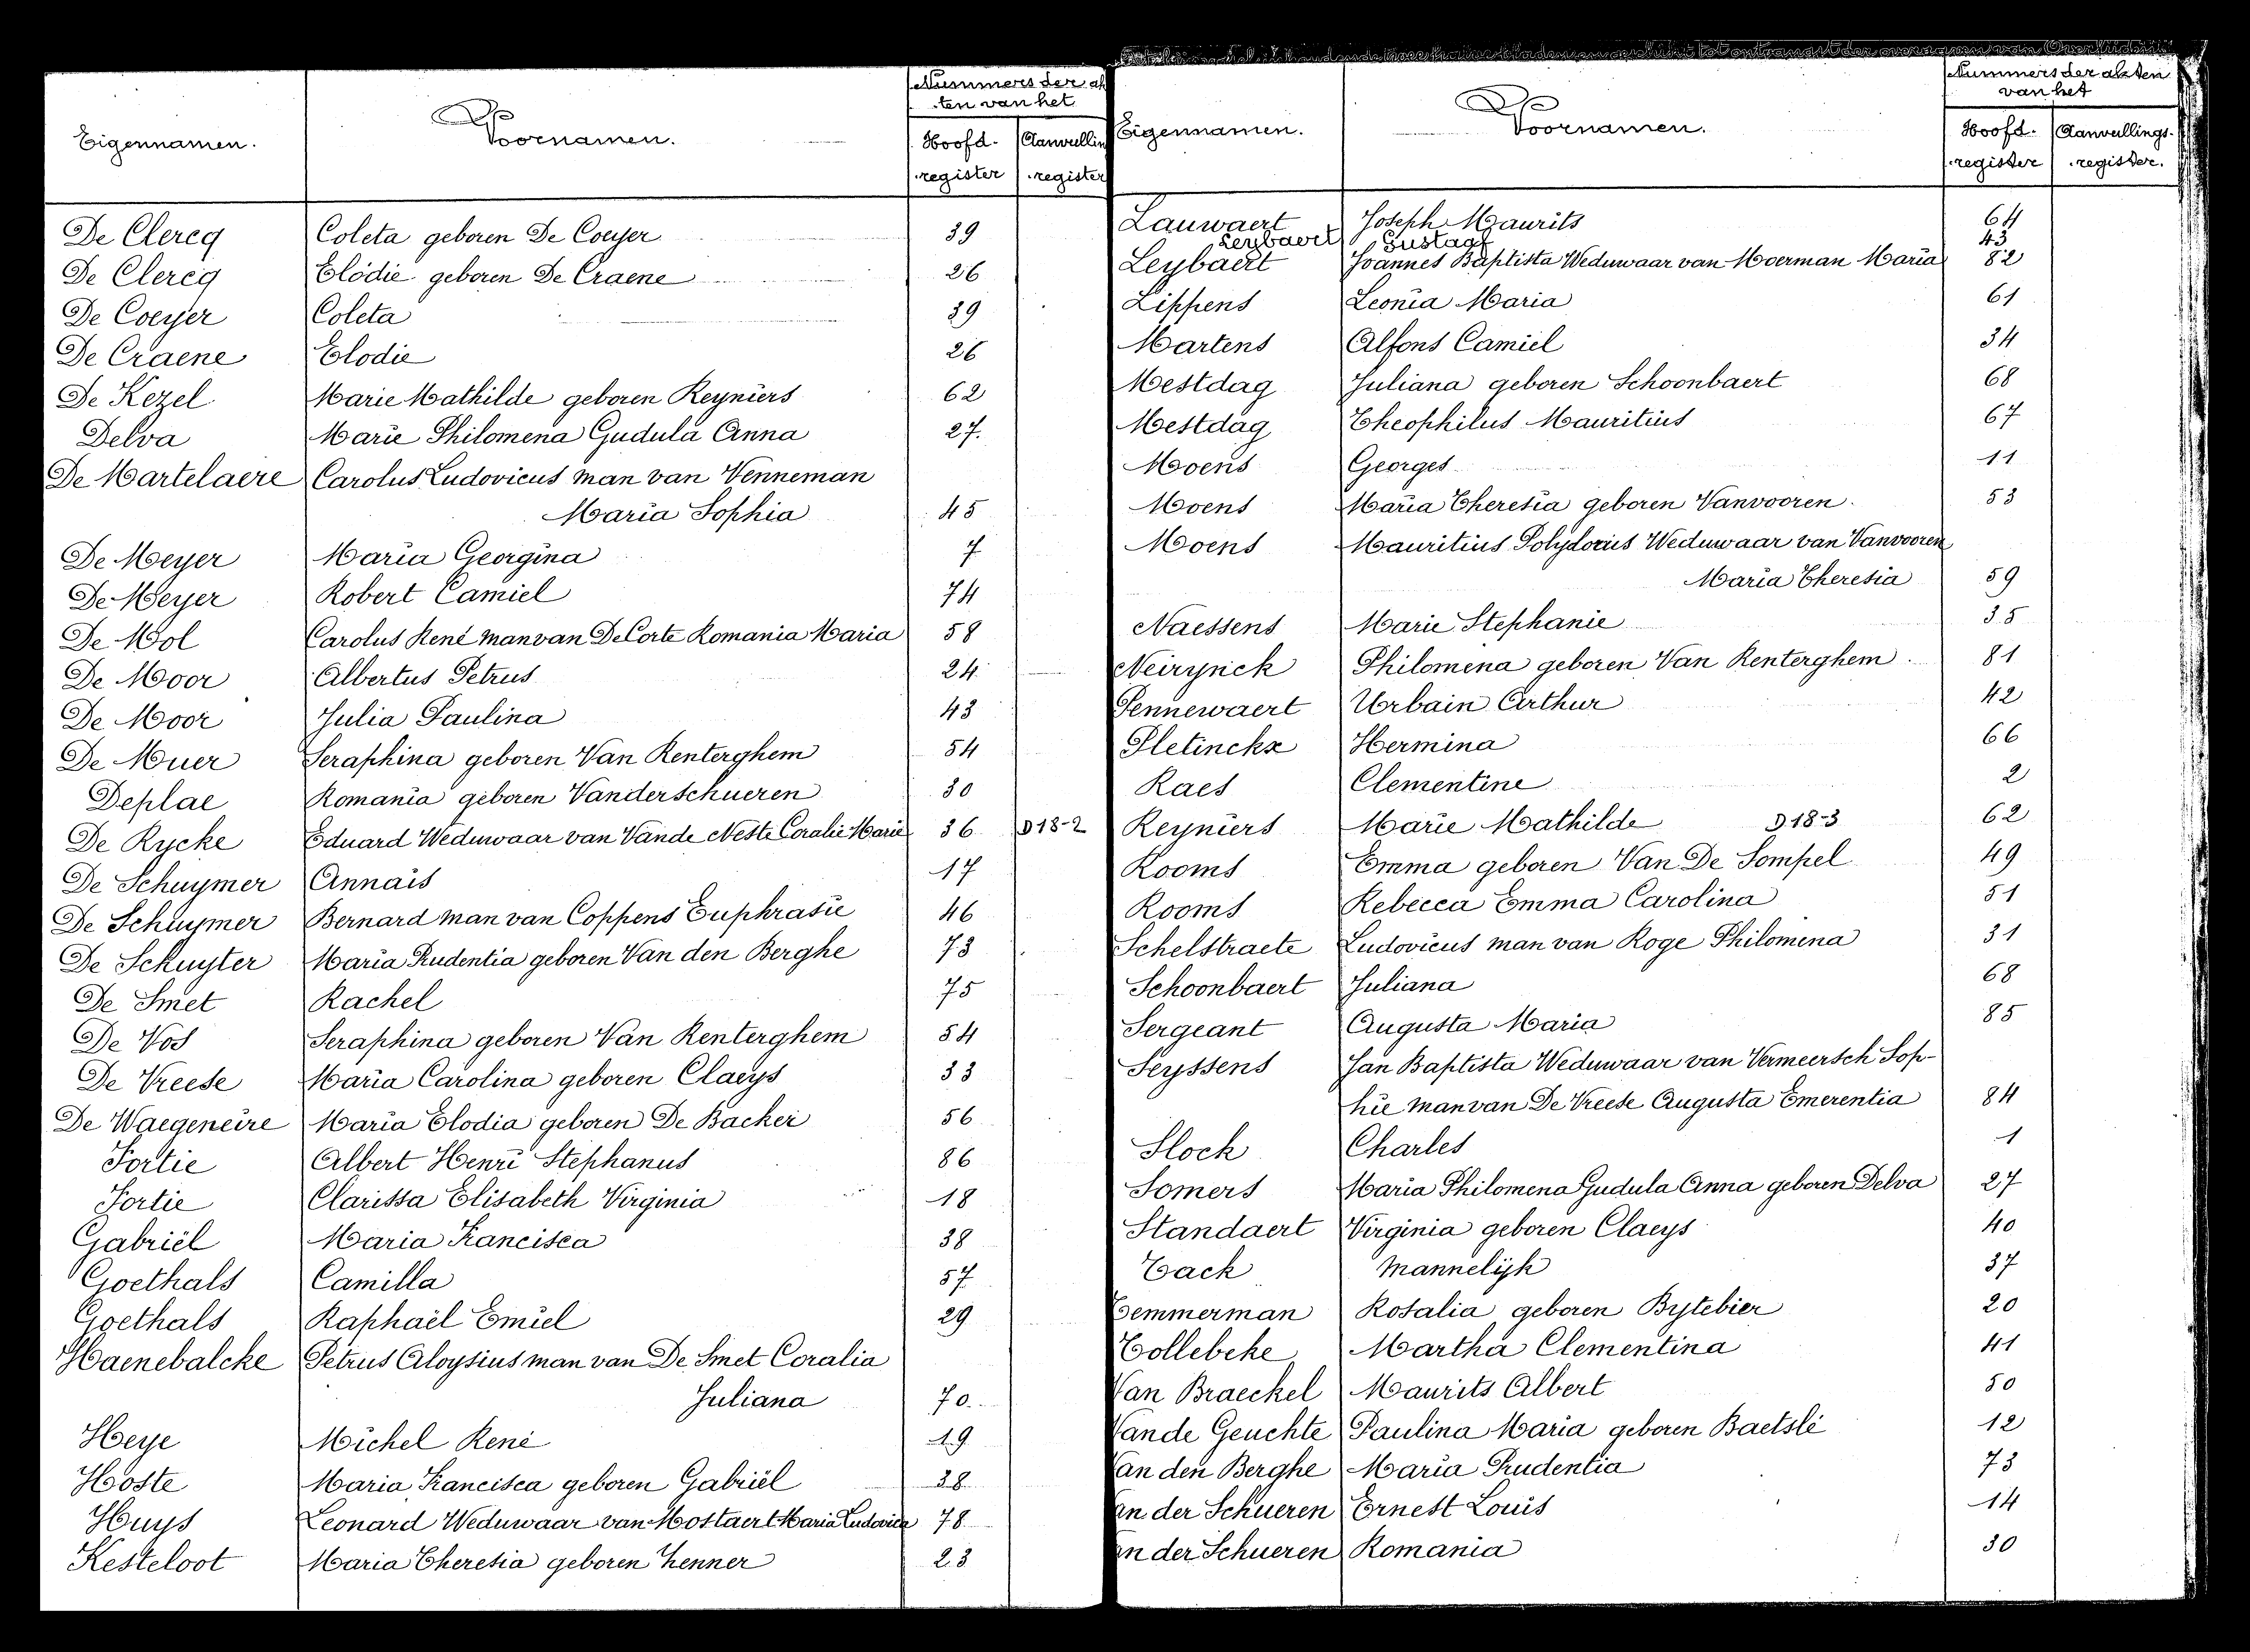 Nummers der ak
ten van het
Eigennamen. Voornamen. Hoofd- Aanvullin
register register
De Clercq Coleta geboren De Coeyer 39
De Clercq Elodie geboren De Craene 26
De Coeyer Coleta 39
De Craene Elodie 26
De Kezel Marie Mathilde geboren Reyniers 62
Delva Marie Philomena Gudula Anna 27.
De Martelaere Carolus Ludovicus man van Venneman
Maria Sophia 45
De Meyer Maria Georgina 7
De Meyer Robert Camiel 74
De Mol Carolus René man van De Corte Romania Maria 58
De Moor Albertus Petrus 24
De Moor Julia Paulina 43
De Muer Seraphina geboren Van Renterghem 54
Deplae Romania geboren Vanderschueren 30
De Rycke Eduard Weduwaar van Vande Neste Coralie Marie 36 D18-2
De Schuymer Annaïs 17
De Schuymer Bernard man van Coppens Euphrasie 46
De Schuyter Maria Prudentia geboren Van den Berghe 73
De Smet Rachel 75
De Vos Seraphina geboren Van Renterghem 54
De Vreese Maria Carolina geboren Claeys 33
De Waegeneire Maria Elodia geboren De Backer 56
Fortie Albert Henri Stephanus 86
Fortie Clarissa Elisabeth Virginia 18
Gabriël Maria Francisca 38
Goethals Camilla 57
Goethals Raphaël Emiel 29
Haenebalcke Petrus Aloysius man van De Smet Coralia
Juliana 70
Heye Michel René 19
Hoste Maria Francisca geboren Gabriël 38
Huys Leonard Weduwaar van Mostaert Maria Ludovica 78
Kesteloot Maria Theresia geboren Zenner 23
Nummers der akten
van het
Eigennamen. Voornamen. Hoofd- Aanvullings-
register register.
Lauwaert Joseph Maurits 64
Leybaert Gustaaf 43
Leybaert Joannes Baptista Weduwaar van Moerman Maria 82
Lippens Leonia Maria 61
Martens Alfons Camiel 34
Mestdag Juliana geboren Schoonbaert 68
Mestdag Theophilus Mauritius 67
Moens Georges 11
Moens Maria Theresia geboren Vanvooren 53
Moens Mauritius Polydorus Weduwaar van Vanvooren
Maria Theresia 59
Naessens Marie Stephanie 35
Neirynck Philomena geboren Van Renterghem 81
Pennewaert Urbain Arthur 42
Pletinckx Hermina 66
Raes Clementine 2
Reyniers Marie Mathilde D18-3 62
Rooms Emma geboren Van De Sompel 49
Rooms Rebecca Emma Carolina 51
Schelstraete Ludovicus man van Roge Philomena 31
Schoonbaert Juliana 68
Sergeant Augusta Maria 85
Seyssens Jan Baptista Weduwaar van Vermeersch Sop-
hie man van De Vreese Augusta Emerentia 84
Slock Charles 1
Somers Maria Philomena Gudula Anna geboren Delva 27
Standaert Virginia geboren Claeys 40
Tack Mannelijk 37
Temmerman Rosalia geboren Bytebier 20
Tollebeke Martha Clementina 41
Van Braeckel Maurits Albert 50
Vande Geuchte Paulina Maria geboren Baetslé 12
Van den Berghe Maria Prudentia 73
an der Schueren Ernest Louis 14
an der Schueren Romania 30